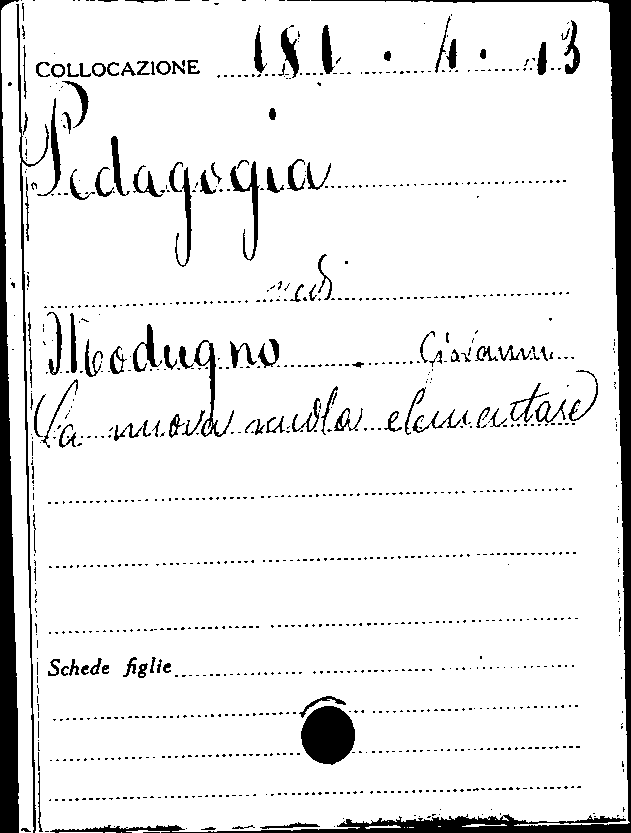 COLLOCAZIONE 181 . 4 . 13
Pedagogia
vedi
Modugno Giovanni
La nuova scuola elementare
Schede figlie